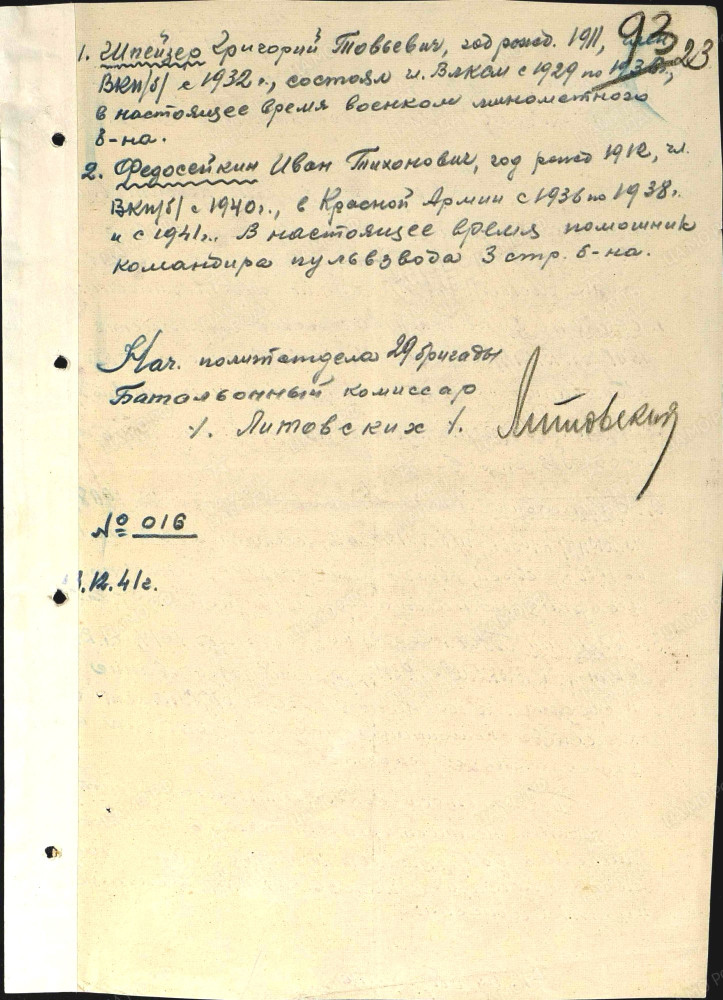 93
23
1. Шпейзер Григорий Товьевич, год рожд. 1911, член
ВКП/б/ с 1932 г., состоял чл. ВЛКСМ с 1929 по 1936 г.,
в настоящее время военком минометного
б-на.
2. Федосейкин Иван Тихонович, год рожд 1912, чл.
ВКП/б/ с 1940 г., в Красной Армии с 1936 по 1938 г.
и с 1941 г.. В настоящее время помошник
командира пульвзвода 3 стр. б-на.
Нач. политотдела 29 бригады
Батальонный комиссар
/. Литовских /.
Литовских
№ 016
.12.41г.